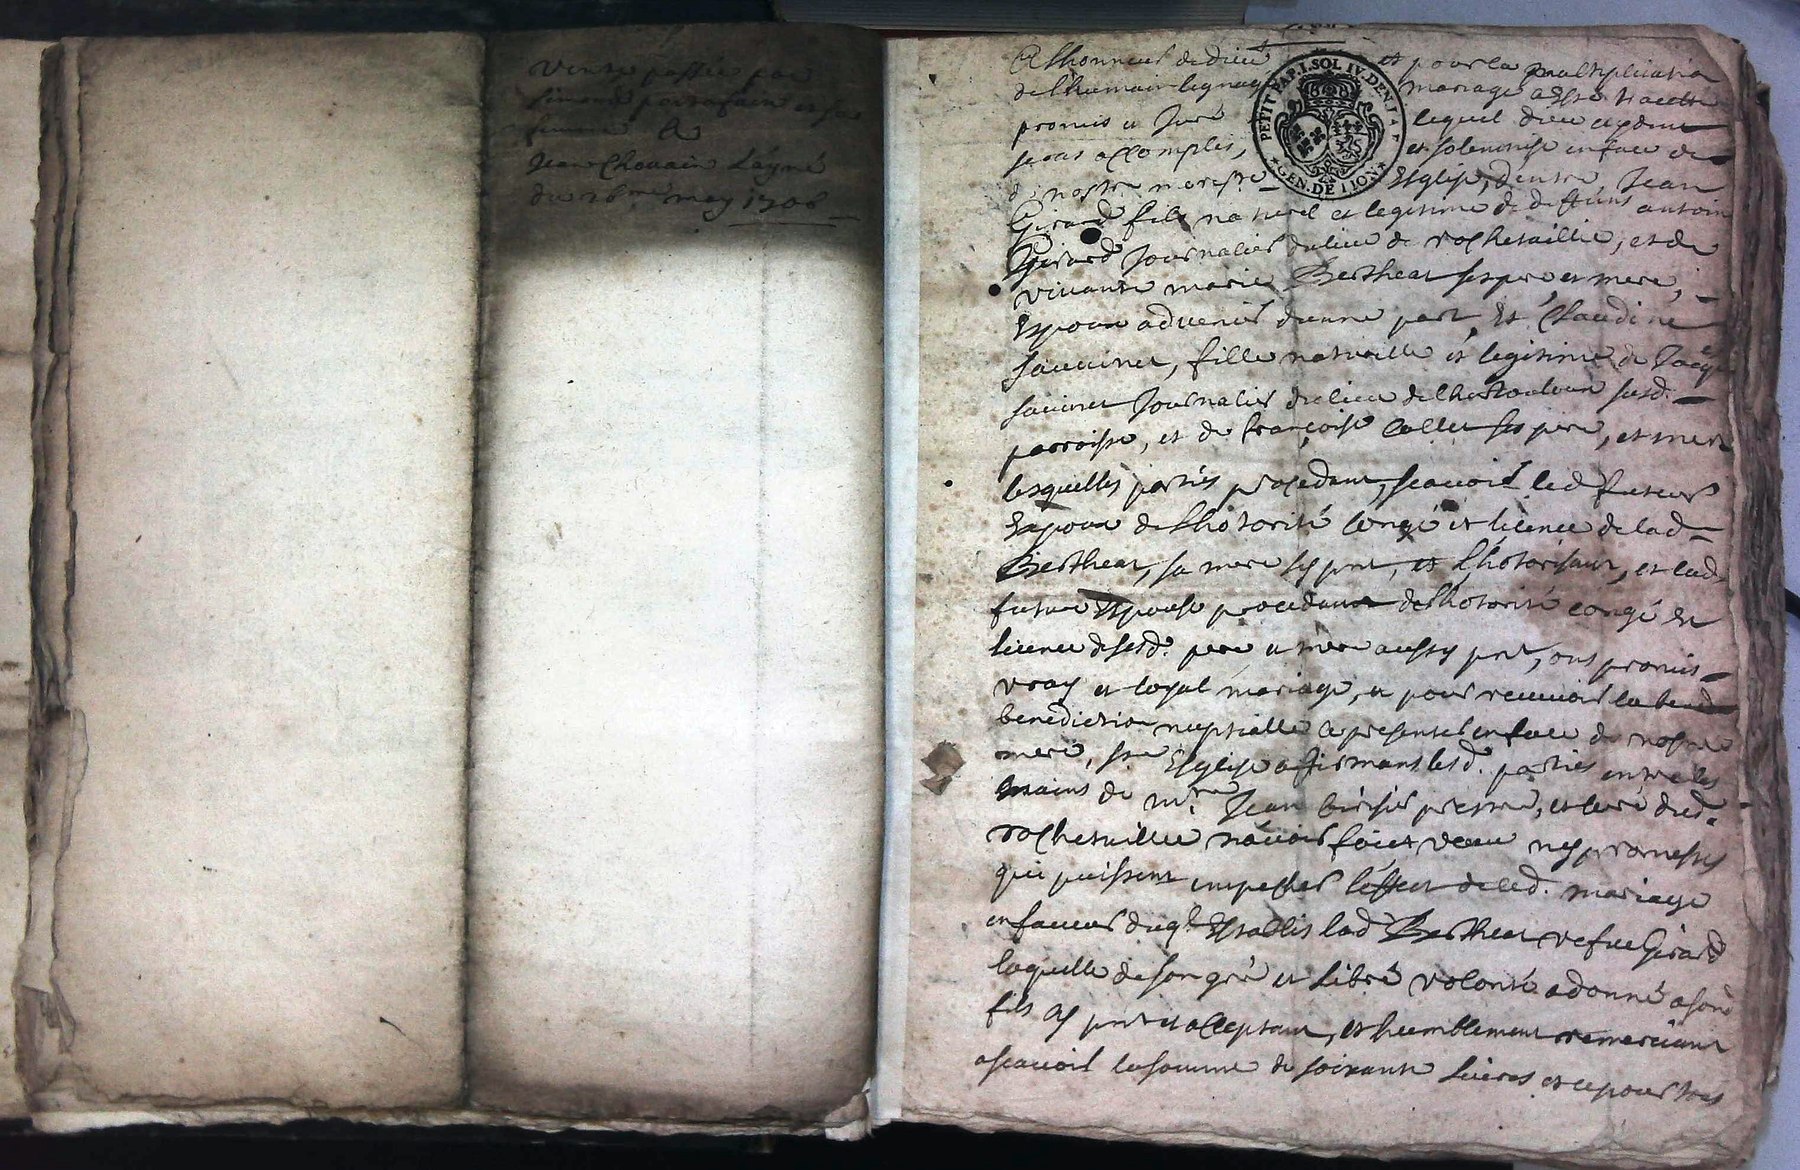 Vente passée par
Simond et sa
femme A
Jean Chouain Layné
du 26me may 1706
A Lhonneur de dieu et pour la multiplication
de Lhumain lignage mariage a esté traitté
promis et Juré lequel dieu aydant
seras accomplis, et solemnisé en face de
nostre mere ste Esglise, dentre Jean
Girard fils naturel et legitime de deffunt antoine
Girard Journalier du lieu de rochetaillie, et de
vivante marie Berthear ses pere et mere,
Espoux advenir dunne part, Et Claudine
sauvinet, fille naturelle et legitime de Jacques
sauvinet Journalier du lieu de susd.
parroisse, et de françoise Collet ses pere, et mere
lesquelles parties procedant, scavoir led futeur
Espoux de Lhotorité congé et licence de lad
Berthear, sa mere cy pnt, et Lhotorisant, et lad
future Espouse procedante de Lhotorité congé et
licence de sesd. pere et mere aussy pnt, ont promis
vray et loyal mariage, et pour recevoir la
benediction nuptialle ce presenter en face de nostre
mere, ste Esglise affirmant lesd. parties entre les
mains de mre Jean prestre, et curé dud.
rochetaillie navoir faict veux ny promesses
qui puissent empescher leffect duled. mariage
en faveur duql Establis lad Berthear vefve Girard
laquelle de son gré et libre volonté a donné a sond
fils cy pnt et acceptant, et humblement remerciant
ascavoir la somme de soixante livres et ce pour tous
PETIT PAP. I. SOL IV. DEN. LA F
GEN. DE LION